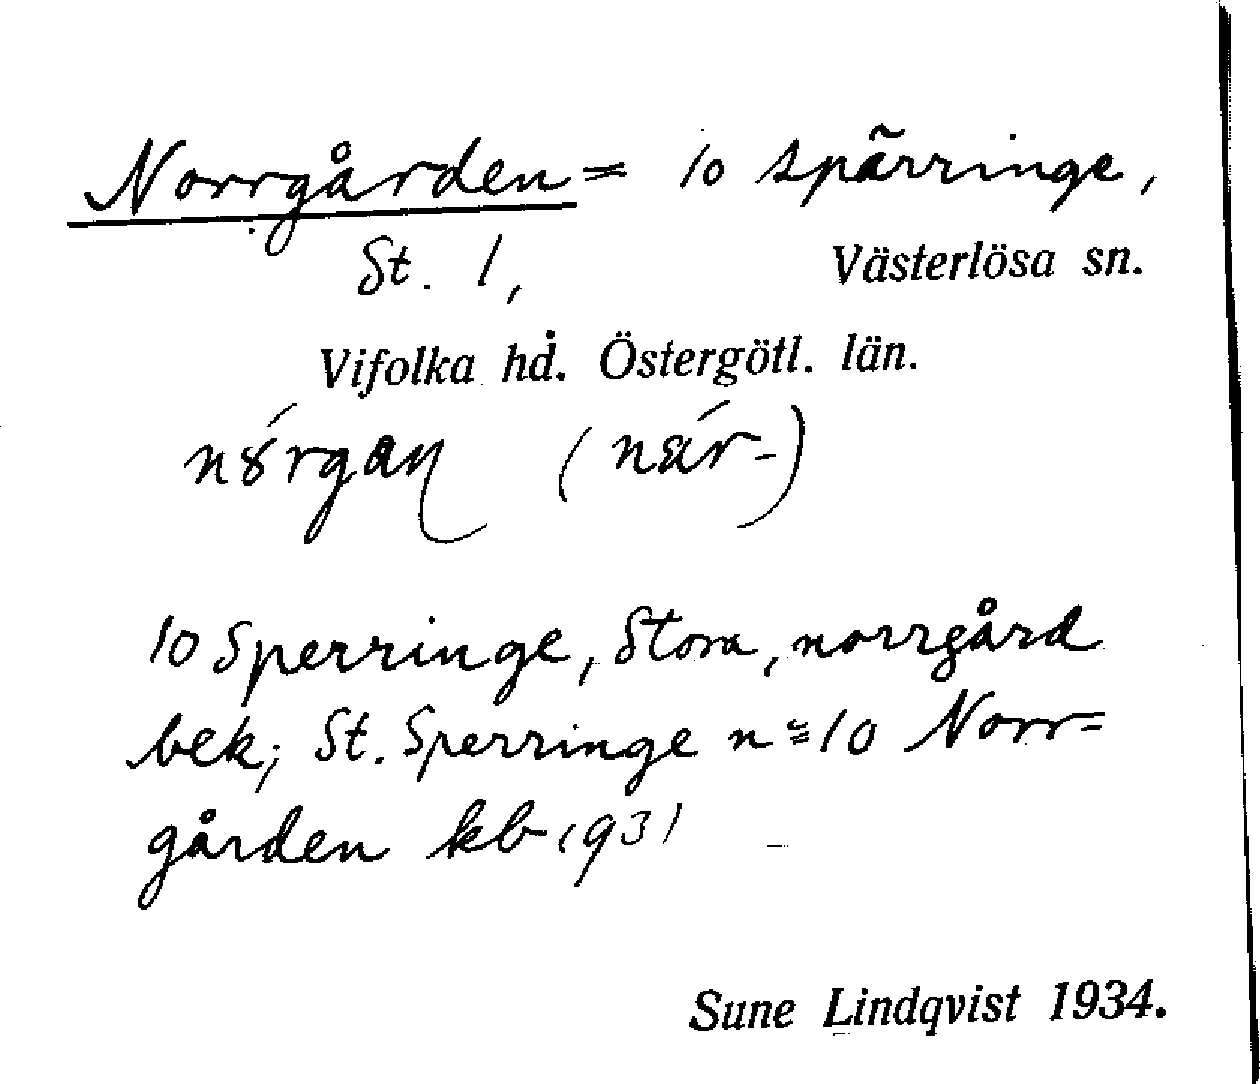 Norrgården = 10 Spärringe,
St. 1, Västerlösa sn.
Vifolka hd. Östergötl. län.
10 Sperringe, Stora, norrgård
bek; St. Sperringe n≚10 Norr=
gården kb 1931
Sune Lindqvist 1934.